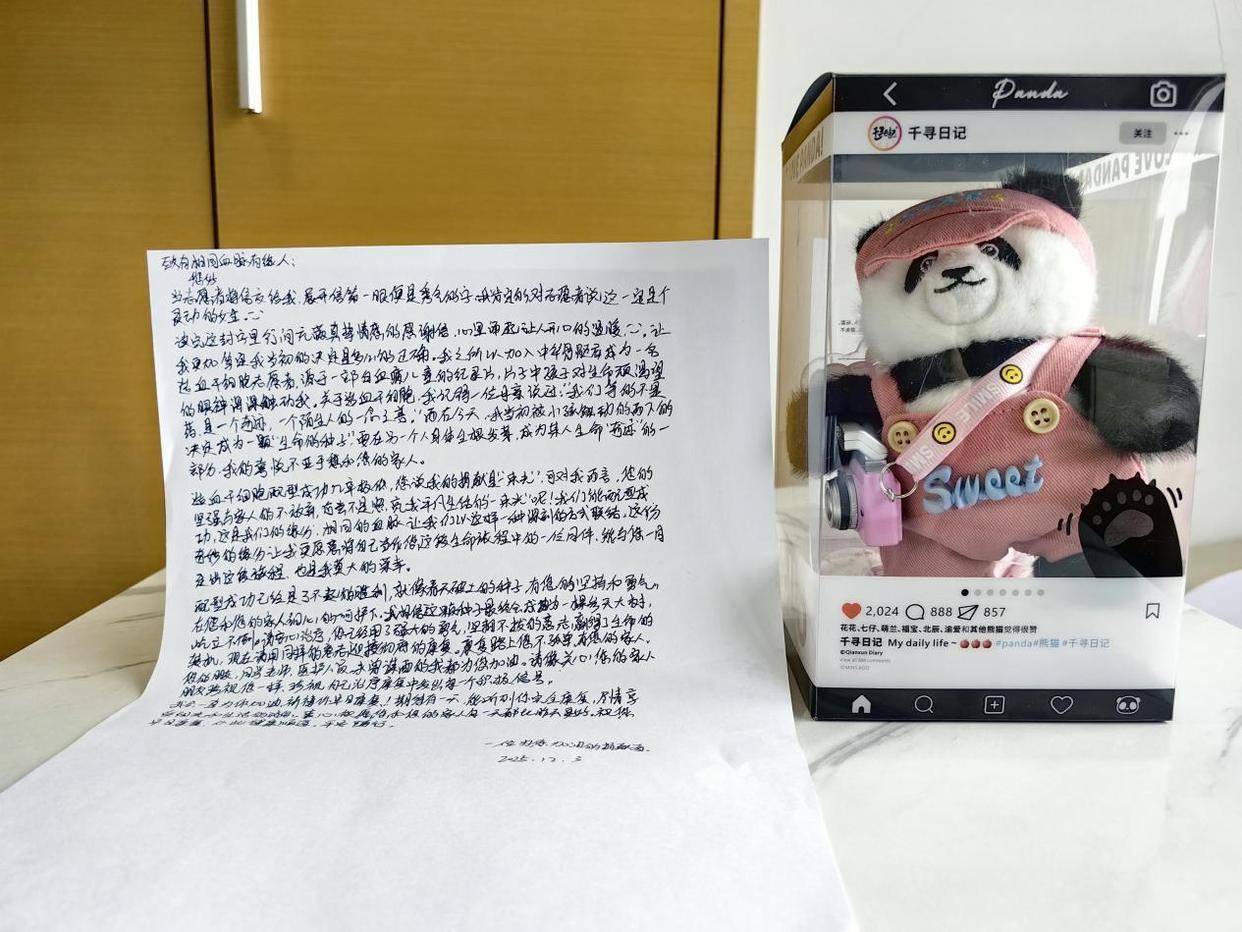 致有相同血脉有缘人：
您好
当志愿者将信交给我，展开信第一眼便是秀气的字，我肯定的对志愿者说，这一定是个
灵动的女生
读完这封字里行间充满真挚情感的感谢信，心里涌起让人开心的温暖，让
我更加笃定我当初的决定是多么的正确。我之所以加入中华骨髓库成为一名
造血干细胞志愿者，源于一部白血病儿童的纪录片，片子中孩子对生命顽强渴望
的眼神深深触动我。关于造血干细胞，我记得一位母亲说过："我们等的不是
药，是一个奇迹，一个陌生人的一念之善。"而在今天，我当初被小孩触动的而下的
决定成为一颗"生命的种子"要在另一个人身体生根发芽，成为某人生命"奇迹"的一
部份，我的喜悦不亚于您和您的家人。
造血干细胞配型成功几率极低，您说我的捐献是"来光"，可对我而言，您的
坚强与家人的不放弃，何尝不是照亮我平凡生活的一束光呢！我们能配型成
功，这是我们的缘分，相同的血脉，让我们以这样一种特别的方式联结，这份
奇妙的缘分让我更愿意将自己当作您这段生命旅程中的一位同伴，能与您一同
走出这段旅程，也是我莫大的荣幸。
配型成功已经是了不起的胜利，就像春天破土的种子，有您的坚持和勇气，
在您和您的家人的细心呵护下，我相信这颗种子最终会成为一棵参天大树，
屹立不倒。请安心治疗，您已经用了强大的勇气，坚韧不拔的意志，赢得了生命的
契机，现在请用同样的意志迎接您的康复。康复路上您不孤单，有您的家人
您的朋友，同学老师，医护人员，未曾谋面的我都为您加油。请像关心您的家人
朋友珍视您一样，珍视自己治疗康复中发出每个积极信号。
我会一直为你加油，祈祷你早日康复！期待有一天，能听到你完全康复，尽情享
一位为您加油的捐献者。
2025.12.3
Panda
千寻日记
关注
LOVE PANDA
SMILE
Sweet
2,024 888 857
花花、七仔、萌兰、福宝、北辰、渝爱和其他熊猫觉得很赞
千寻日记 My daily life~ #panda#熊猫 #千寻日记
©Qianxun Diary
View all 888 comments